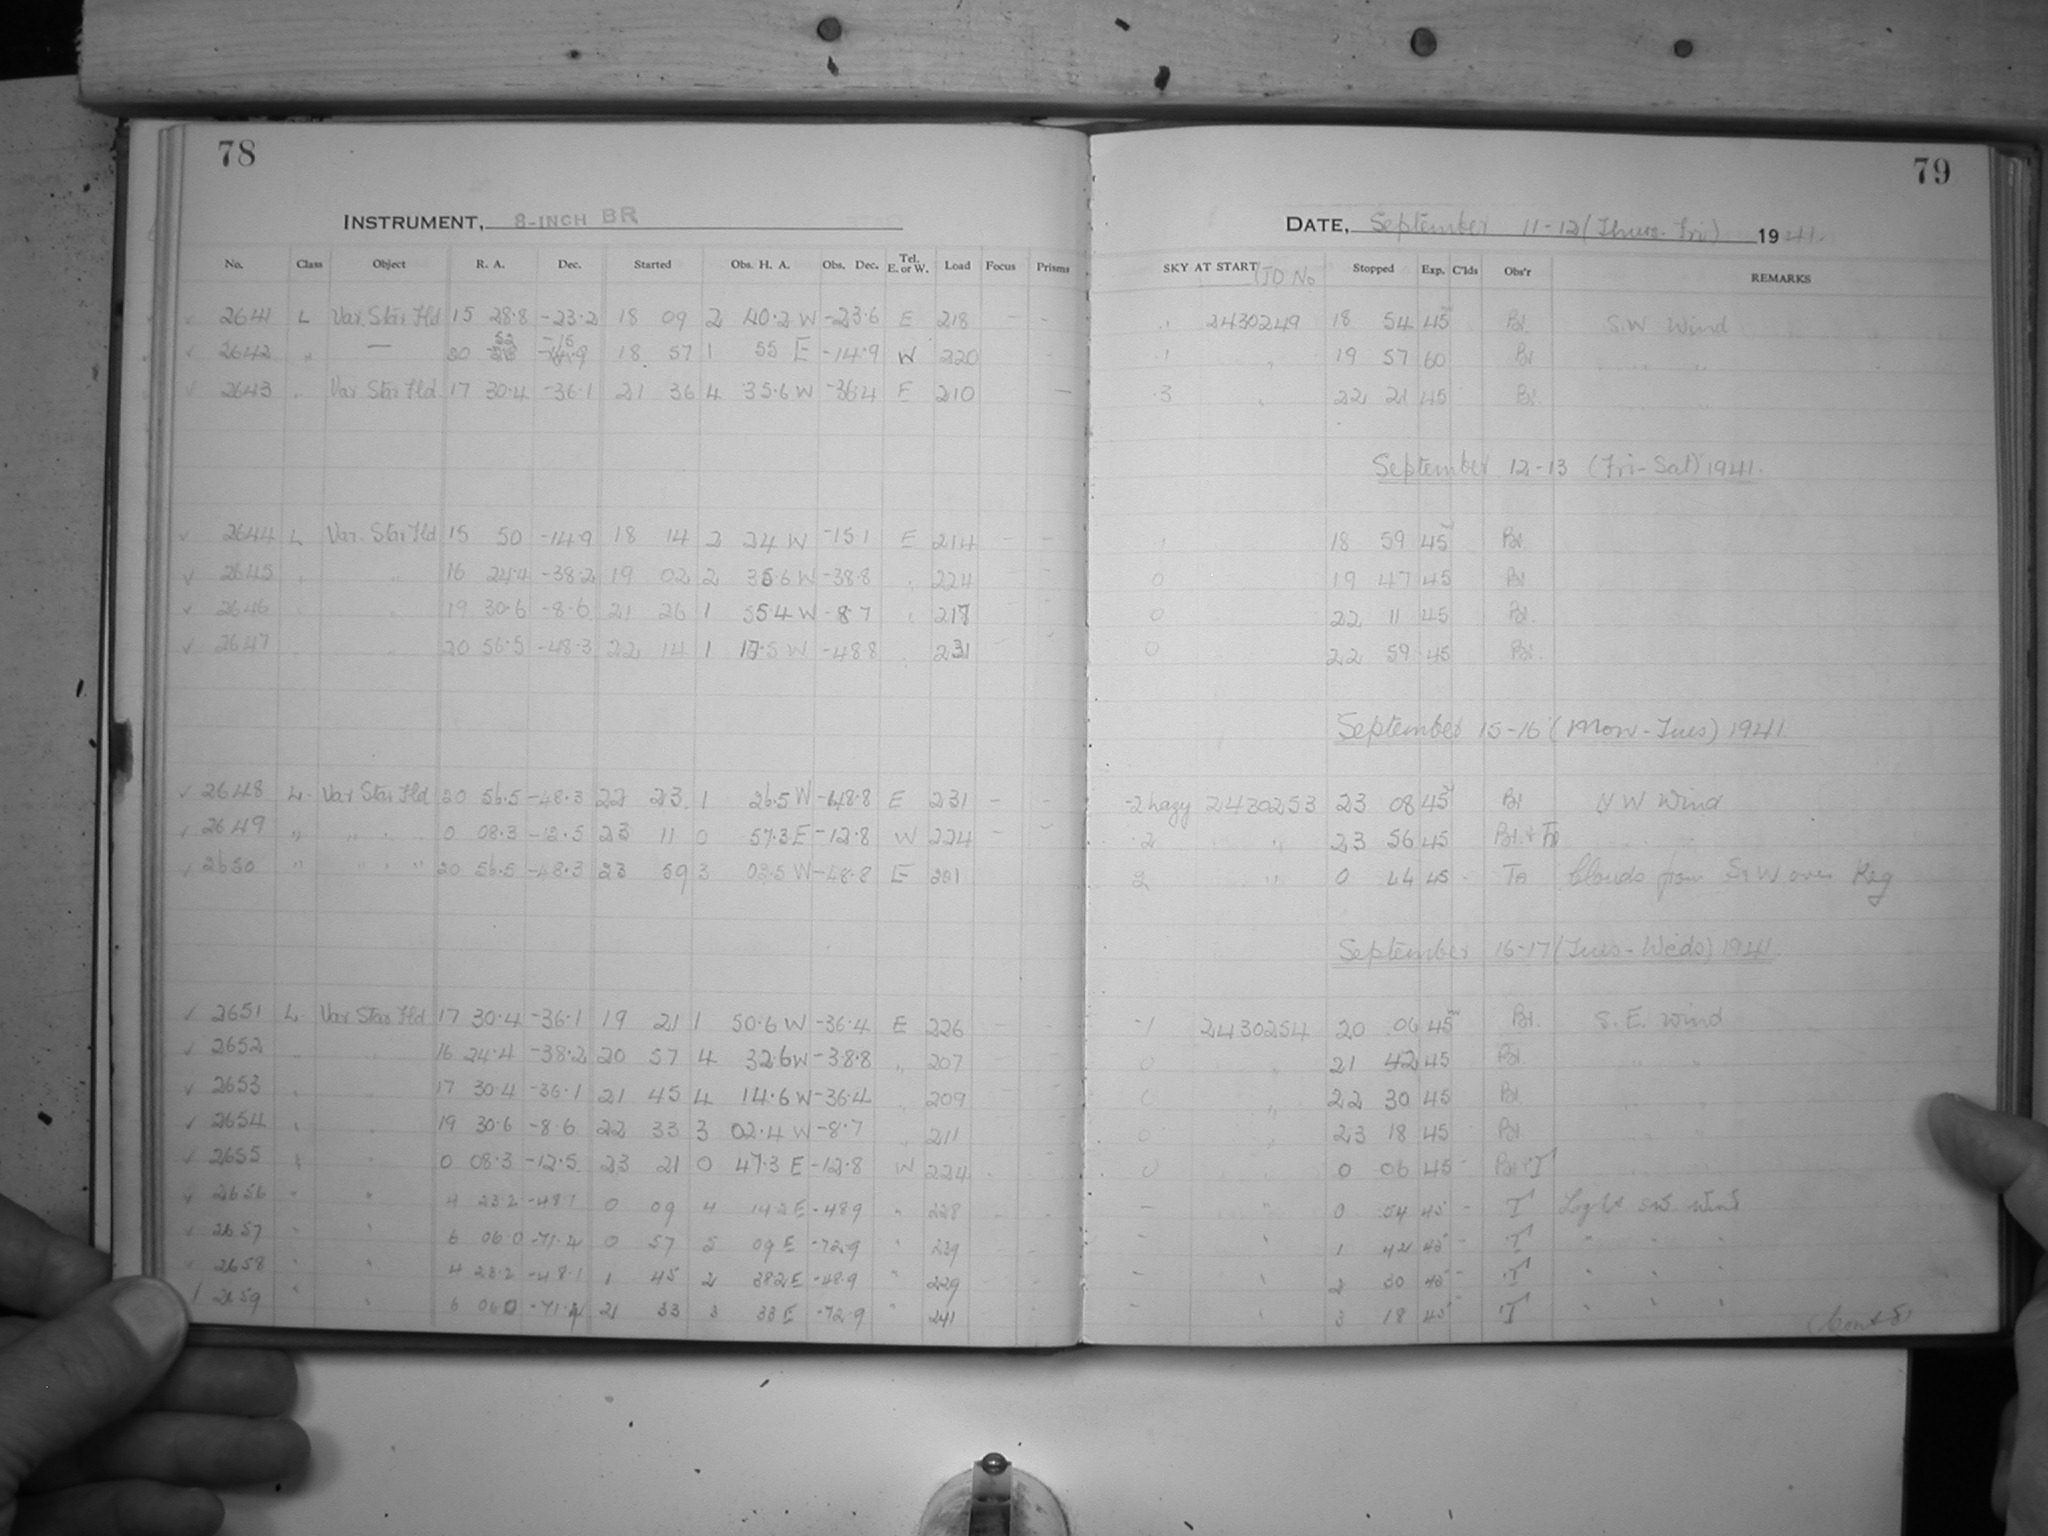 78
INSTRUMENT, 8-INCH BR
No. Class Object R. A. Dec. Started Obs. H. A. Obs. Dec. Tel. E. or W. Load Focus Prisms
✓ 2641 L Var. Star Fld 15 28.8 -23.2 18 09 2 40.2 W -23.6 E 218 - -
✓ 2642 " — 20 52 -15 18 57 1 55 E -14.9 W 220
✓ 2643 " Var Star Fld 17 30.4 -36.1 21 36 4 35.6 W -36.4 E 210 —
✓ 2644 L Var. Star Fld 15 50 -14.9 18 14 2 24 W -15.1 E 214 - -
✓ 2645 " " 16 24.4 -38.2 19 02 2 35.6 W -38.8 " 224
✓ 2646 " " 19 30.6 -8.6 21 26 1 55.4 W -8.7 " 217
✓ 2647 " 20 56.5 -48.3 22 14 1 17.5 W -48.8 " 231
✓ 2648 L. Var Star Fld 20 56.5 -48.3 22 23 1 26.5 W -48.8 E 231 - -
✓ 2649 " " " 0 08.3 -12.5 23 11 0 57.3 E -12.8 W 224 - -
✓ 2650 " " " " 20 56.5 -48.3 23 59 3 02.5 W -48.8 E 231
✓ 2651 L. Var Star Fld 17 30.4 -36.1 19 21 1 50.6 W -36.4 E 226 - -
✓ 2652 " " 16 24.4 -38.2 20 57 4 32.6 W -38.8 " 207
✓ 2653 " " 17 30.4 -36.1 21 45 4 14.6 W -36.4 " 209
✓ 2654 " " 19 30.6 -8.6 22 33 3 02.4 W -8.7 " 211
✓ 2655 " " 0 08.3 -12.5 23 21 0 47.3 E -12.8 W 224
✓ 2656 " " 4 23.2 -48.1 0 09 4 14.2 E -48.9 " 228
✓ 2657 " " 6 06.0 -71.4 0 57 5 09 E -72.9 " 239
✓ 2658 " " 4 23.2 -48.1 1 45 2 38.2 E -48.9 " 229
/ 2659 " " 6 06.0 -71.4 2 33 3 33 E -72.9 " 241
79
DATE, September 11-12 (Thurs. Fri) 1941.
SKY AT START JD No Stopped Exp. C'lds Obs'r REMARKS
1 2430249 18 54 45 Bl. S.W Wind
1 " 19 57 60 Bl
3 " 22 21 45 Bl.
September 12-13 (Fri-Sat) 1941.
1 18 59 45 Bl.
0 19 47 45 Bl
0 22 11 45 Bl.
0 22 59 45 Bl.
September 15-16 (Mon-Tues) 1941.
-2 hazy 2430253 23 08 45 Bl N W Wind
2 " 23 56 45
2 " 0 44 45 - Clouds from S.W over Reg
September 16-17 (Tues-Weds) 1941.
-1 2430254 20 06 45 Bl. S. E. wind
0 " 21 42 45 Bl
0 " 22 30 45 Bl
0 " 23 18 45 Bl
0 0 06 45 -
- " 0 54 45 - T Light wind
- " 1 42 45 - T " " "
- " 2 30 45 T " " "
- " 3 18 45 T " " "
(Contd)